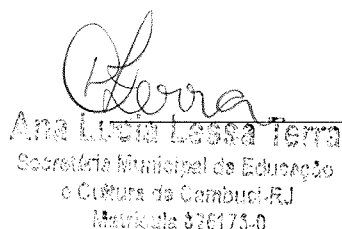 Terra
Ana Lucia Lessa Terra
Secretária Municipal de Educação
e Cultura de Cambuci-RJ
Matrícula 626173-0